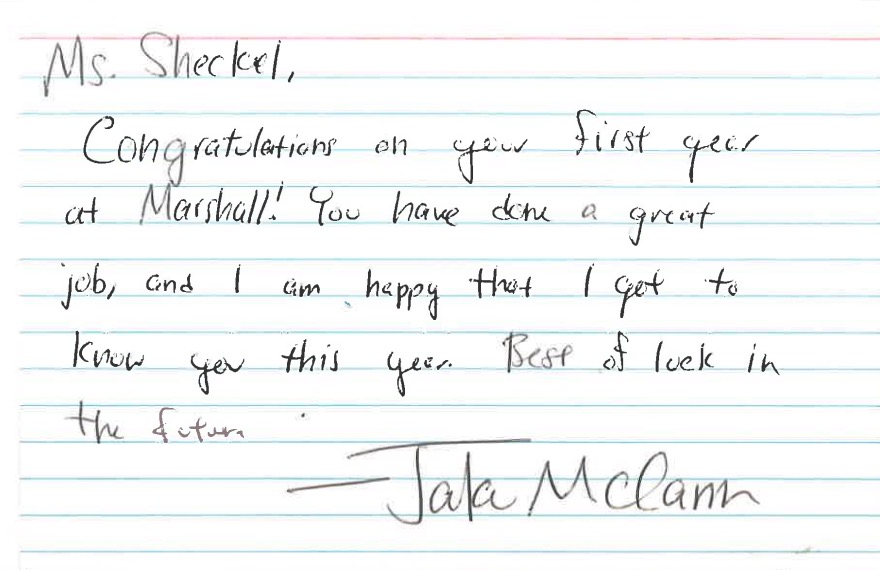 Ms. Sheckel,
Congratulations on your first year
at Marshall! You have done a great
job, and I am happy that I got to
know you this year. Best of luck in
the future
— McCann